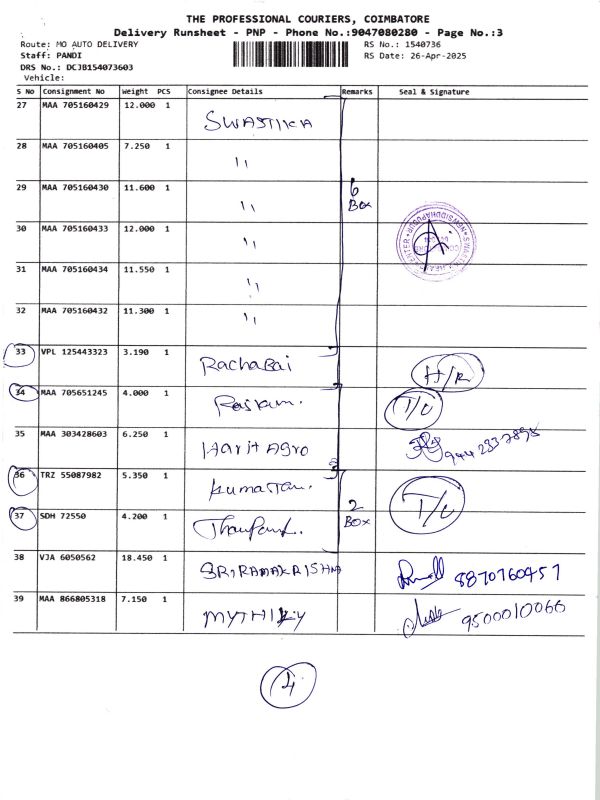 THE PROFESSIONAL COURIERS, COIMBATORE
Delivery Runsheet - PNP - Phone No.:9047080280 - Page No.:3
Route: MO AUTO DELIVERY RS No.: 1540736
Staff: PANDI RS Date: 26-Apr-2025
DRS No.: DCJB154073603
Vehicle:
S No Consignment No Weight PCS Consignee Details Remarks Seal & Signature
27 MAA 705160429 12.000 1 SWASTIKA
28 MAA 705160405 7.250 1 11
29 MAA 705160430 11.600 1 11 6 BOX
30 MAA 705160433 12.000 1 11
31 MAA 705160434 11.550 1 11
32 MAA 705160432 11.300 1 11
33 VPL 125443323 3.190 1 RachaBai H/R
34 MAA 705651245 4.000 1 T/U
35 MAA 303428603 6.250 1 Harit Agro
36 TRZ 55087982 5.350 1 T/U
37 SDH 72550 4.200 1 2 BOX
38 VJA 6050562 18.450 1 SRIRAMAKRISHNA 8870760457
39 MAA 866805318 7.150 1 MYTHILY 9500010066
4